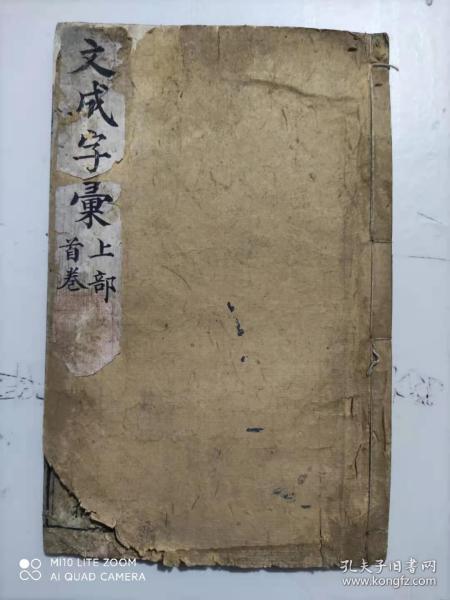 文成字彙
上部
首卷
MI10 LITE ZOOM
AI QUAD CAMERA
孔夫子旧书网
www.kongfz.com